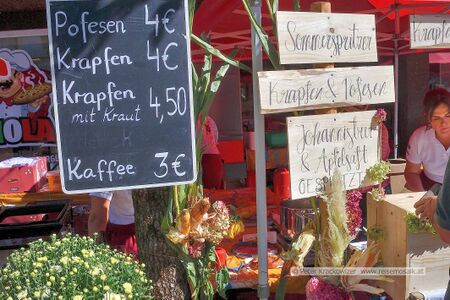 Pofesen 4€
Krapfen 4€
Krapfen 4,50
mit Kraut
Kaffee 3€
Sommerspritzer
Krapfen & Pofesen
Johannisbeer
& Apfelsaft
GESPRITZT
Krapfen
© Peter Krackowizer www.reisemosaik.at